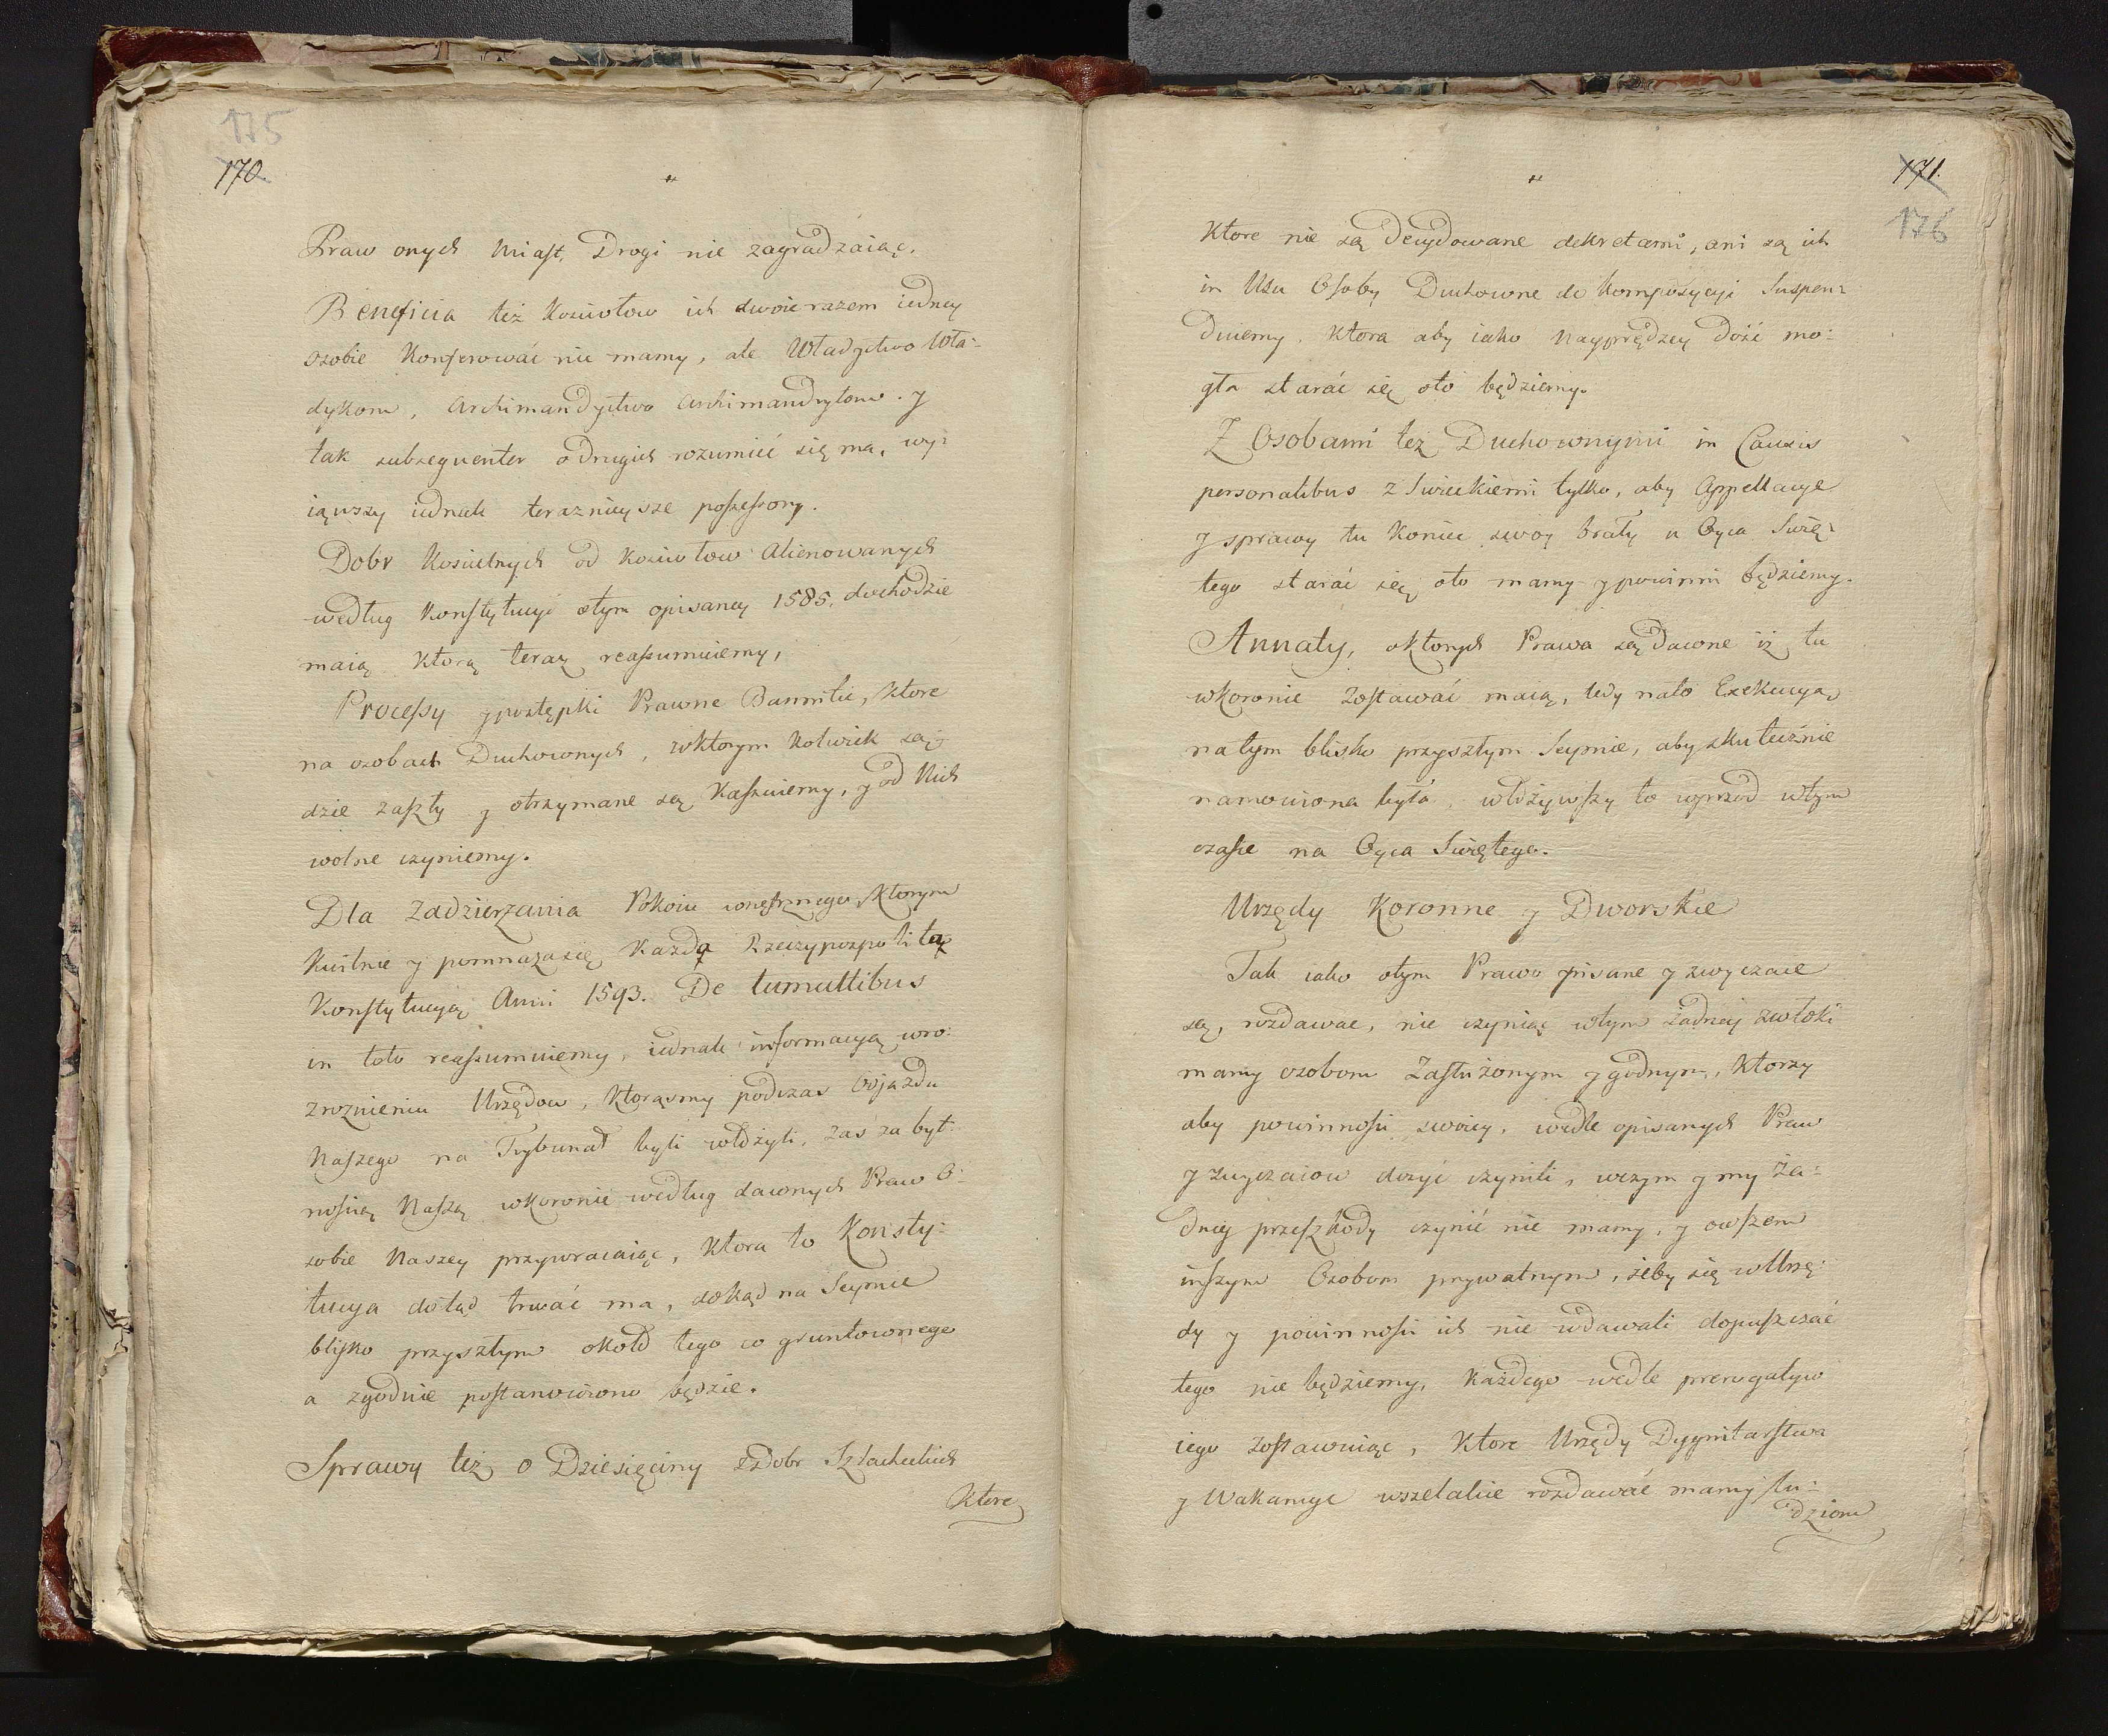 175
170.
Praw onych Miast, Drogi nie zagradzaiąc.
Beneficia też Kosciołow ich dwoie razem iedney
osobie Konferować nie mamy, ale Władyctwo Wła-
dykom, Archimandyctwo Archimandrytom. y
tak subsequenter o drugich rozumieć się ma, wy-
iąwszy iednak teraznieysze possessory.
Dobr Koscielnych od Kosciołow Alienowanych
według Konstytucyi otym opisaney 1585. dochodzić
maią ktorą teraz reassumuiemy,
Processy y postępki Prawne Bannitie, Ktore
na osobach Duchownych, w ktorym kolwiek są-
dzie zaszły y otrzymane są Kassuiemy, y od Nich
wolne czyniemy.
Dla Zadzierzania Pokoiu wnętrznego, Ktorym
Kwitnie y pomnaza się Kazda Rzeczypospolita
Konstytucyą Anni 1593. De tumultibus
in toto reassumuiemy, iednak informacyą wro-
zroznieniu Urzędow, Ktorąsmy podczas Odjazdu
Naszego na Trybunał byli włożyli, zas za byt-
nością Naszą w koronie według dawnych Praw O-
sobie Naszey przywracaiąc, Ktora to Konsty-
tucya dotąd trwać ma, dokąd na Seymie
blisko przyszłym około tego co gruntownego
a zgodnie postanowiono będzie.
Sprawy też o Dziesięciny z Dobr Szlacheckich
Ktore
171.
176
Ktore nie są Decydowane dekretami, ani są ich
in Usu Osoby Duchowne do Kompozycyi Suspen-
duiemy. Ktora aby iako Nayprędzey Dość mo-
gła starać się oto będziemy.
Z Osobami też Duchownymi in Causis
personalibus z Swieckiemi tylko, aby Appellacye
y sprawy tu Koniec swoy brały u Oyca Swię-
tego starać się oto mamy y powinni będziemy.
Annaty, o ktorych Prawa są Dawne iż tu
w koronie zostawać maią, tedy na to Exekucya
na tym blisko przyszłym Seymie, aby skutecżnie
namowiona była, włożywszy to wprzod w tym
czasie na Oyca Swiętego.
Urzędy Koronne y Dworskie
Tak iako otym Prawo pisane y zwyczaie
są, rozdawać, nie czyniąc wtym żadney zwłoki
mamy osobom Zasłużonym y godnym, Ktorzy
aby powinnosci swoiey, wedle opisanych Praw
y zwyczaiow dosyć czynili, wczym y my Ża-
dney przeszkody czynić nie mamy, y owszem
inszym Osobom prywatnym, żeby się w Urzę-
dy y powinnosci ich nie wdawali dopuszczać
tego nie będziemy, Każdego wedle prerogatyw
iego zostawuiąc, Ktore Urzędy Dygnitarstwa
y Wakancye wszelakie rozdawać mamy lu-
dziom